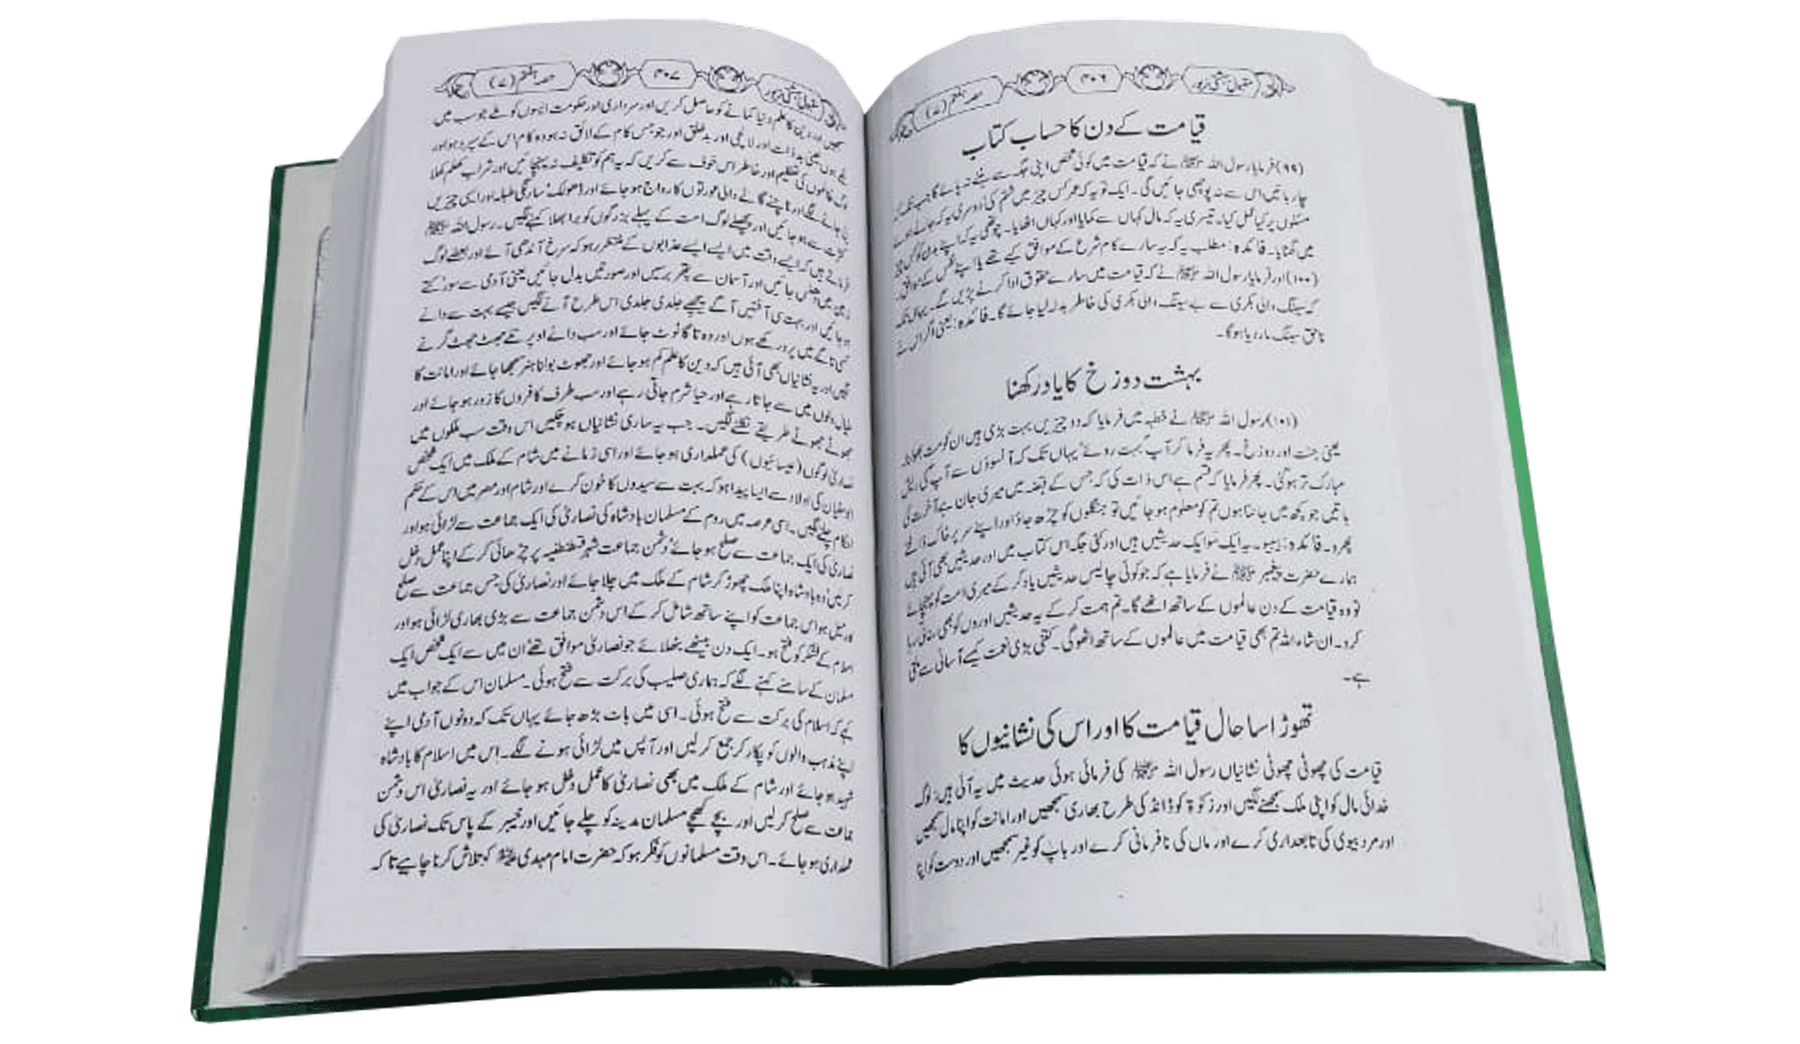 مقبول بہشتی زیور ۳۰۶ حصہ ہفتم (۷)
قیامت کے دن کا حساب کتاب
(۹۹) فرمایا رسول اللہ ﷺ نے کہ قیامت میں کوئی شخص اپنی جگہ سے ہٹنے نہ پائے گا جب تک کہ
چار باتیں اس سے نہ پوچھی جائیں گی۔ ایک تو یہ کہ عمر کس چیز میں ختم کی دوسری یہ کہ جانے ہوئے
مسئلوں پر کیا عمل کیا۔ تیسری یہ کہ مال کہاں سے کمایا اور کہاں اٹھایا۔ چوتھی یہ کہ اپنے بدن کو کس چیز
میں گھٹایا۔ فائدہ: مطلب یہ کہ یہ سارے کام شرع کے موافق کیے تھے یا اپنے نفس کے موافق۔
(۱۰۰) اور فرمایا رسول اللہ ﷺ نے کہ قیامت میں سارے حقوق ادا کرنے پڑیں گے۔ یہاں تک
کہ سینگ والی بکری سے بے سینگ والی بکری کی خاطر بدلہ لیا جائے گا۔ فائدہ: یعنی اگر اس نے
ناحق سینگ مار دیا ہوگا۔
بہشت دوزخ کا یاد رکھنا
(۱۰۱) رسول اللہ ﷺ نے خطبہ میں فرمایا کہ دو چیزیں بہت بڑی ہیں ان کو مت بھولنا۔
یعنی جنت اور دوزخ۔ پھر یہ فرما کر آپ بہت روئے یہاں تک کہ آنسوؤں سے آپ کی ریش
مبارک تر ہو گئی۔ پھر فرمایا کہ قسم ہے اس ذات کی کہ جس کے قبضہ میں میری جان ہے آخرت کی
باتیں جو کچھ میں جانتا ہوں تم کو معلوم ہو جائیں تو جنگلوں کو چڑھ جاؤ اور اپنے سر پر خاک ڈالتے
پھرو۔ فائدہ: بیبیو۔ یہ ایک سو ایک حدیثیں ہیں اور کئی جگہ اس کتاب میں اور حدیثیں بھی آئی ہیں
ہمارے حضرت پیغمبر ﷺ نے فرمایا ہے کہ جو کوئی چالیس حدیثیں یاد کر کے میری امت کو پہنچائے
تو وہ قیامت کے دن عالموں کے ساتھ اٹھے گا۔ تم ہمت کر کے یہ حدیثیں اوروں کو بھی سناتی رہا
کرو۔ ان شاء اللہ تم بھی قیامت میں عالموں کے ساتھ اٹھو گی۔ کتنی بڑی نعمت کیسے آسانی سے ملتی
ہے۔
تھوڑا سا حال قیامت کا اور اس کی نشانیوں کا
قیامت کی چھوٹی چھوٹی نشانیاں رسول اللہ ﷺ کی فرمائی ہوئی حدیث میں یہ آئی ہیں۔ لوگ
خدائی مال کو اپنی ملک سمجھنے لگیں اور زکوٰۃ کو ڈانڈ کی طرح بھاری سمجھیں اور امانت کو اپنا مال سمجھیں
اور مرد بیوی کی تابعداری کرے اور ماں کی نافرمانی کرے اور باپ کو غیر سمجھیں اور دوست کو اپنا
مقبول بہشتی زیور ۳۰۷ حصہ ہفتم (۷)
سمجھیں اور دین کا علم دنیا کمانے کو حاصل کریں اور سرداری اور حکومت ایسوں کو ملے جو سب میں
نکمے ہوں یعنی بد ذات اور لالچی اور بد خلق اور جو جس کام کے لائق نہ ہو وہ کام اس کے سپرد ہو اور
لوگ ظالموں کی تعظیم اور خاطر اس خوف سے کریں کہ یہ ہم کو تکلیف نہ پہنچائیں اور شراب کھلم کھلا
پی جانے لگے اور ناچنے گانے والی عورتوں کا رواج ہو جائے اور ڈھولک سارنگی طبلہ اور ایسی چیزیں
کثرت سے ہو جائیں اور پچھلے لوگ امت کے پہلے بزرگوں کو برا بھلا کہنے لگیں۔ رسول اللہ ﷺ
فرماتے ہیں کہ ایسے وقت میں ایسے ایسے عذابوں کے منتظر رہو کہ سرخ آندھی آئے اور بعضے لوگ
زمین میں دھنس جائیں اور آسمان سے پتھر برسیں اور صورتیں بدل جائیں یعنی آدمی سے سور کتے
ہو جائیں اور بہت سی آفتیں آگے پیچھے جلدی جلدی اس طرح آنے لگیں جیسے بہت سے دانے
کسی تاگے میں پرو رکھے ہوں اور وہ تاگا ٹوٹ جائے اور سب دانے اوپر تلے جھٹ جھٹ گرنے
لگیں اور یہ نشانیاں بھی آئی ہیں کہ دین کا علم کم ہو جائے اور جھوٹ بولنا ہنر سمجھا جائے اور امانت کا
خیال دلوں میں سے جاتا رہے اور حیا شرم جاتی رہے اور سب طرف کافروں کا زور ہو جائے اور
جھوٹے جھوٹے طریقے نکلنے لگیں۔ جب یہ ساری نشانیاں ہو چکیں اس وقت سب ملکوں میں
نصاریٰ لوگوں (عیسائیوں) کی عملداری ہو جائے اور اسی زمانے میں شام کے ملک میں ایک شخص
ابو سفیان کی اولاد سے ایسا پیدا ہو کہ بہت سے سیدوں کا خون کرے اور شام اور مصر میں اس کے حکم
احکام چلنے لگیں۔ اسی عرصہ میں روم کے مسلمان بادشاہ کی نصاریٰ کی ایک جماعت سے لڑائی ہو اور
نصاریٰ کی ایک جماعت سے صلح ہو جائے دشمن جماعت شہر قسطنطنیہ پر چڑھائی کر کے اپنا عمل دخل
کر لیں وہ بادشاہ اپنا ملک چھوڑ کر شام کے ملک میں چلا جائے اور نصاریٰ کی جس جماعت سے صلح
و میل ہو اس جماعت کو اپنے ساتھ شامل کر کے اس دشمن جماعت سے بڑی بھاری لڑائی ہو اور
اسلام کے لشکر کو فتح ہو۔ ایک دن بیٹھے بٹھلائے جو نصاریٰ موافق تھے ان میں سے ایک شخص ایک
مسلمان کے سامنے کہنے لگے کہ ہماری صلیب کی برکت سے فتح ہوئی۔ مسلمان اس کے جواب میں
کہے کہ اسلام کی برکت سے فتح ہوئی۔ اسی میں بات بڑھ جائے یہاں تک کہ دونوں آدمی اپنے
اپنے مذہب والوں کو پکار کر جمع کر لیں اور آپس میں لڑائی ہونے لگے۔ اس میں اسلام کا بادشاہ
شہید ہو جائے اور شام کے ملک میں بھی نصاریٰ کا عمل دخل ہو جائے اور یہ نصاریٰ اس دشمن
جماعت سے صلح کر لیں اور بچے کھچے مسلمان مدینہ کو چلے جائیں اور خیبر کے پاس تک نصاریٰ کی
عملداری ہو جائے۔ اس وقت مسلمانوں کو فکر ہو کہ حضرت امام مہدی کو تلاش کرنا چاہیے تاکہ